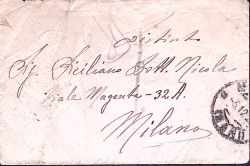 Distinto
Sig. Siciliano Dott. Nicola
Viale Magenta - 32A
Milano